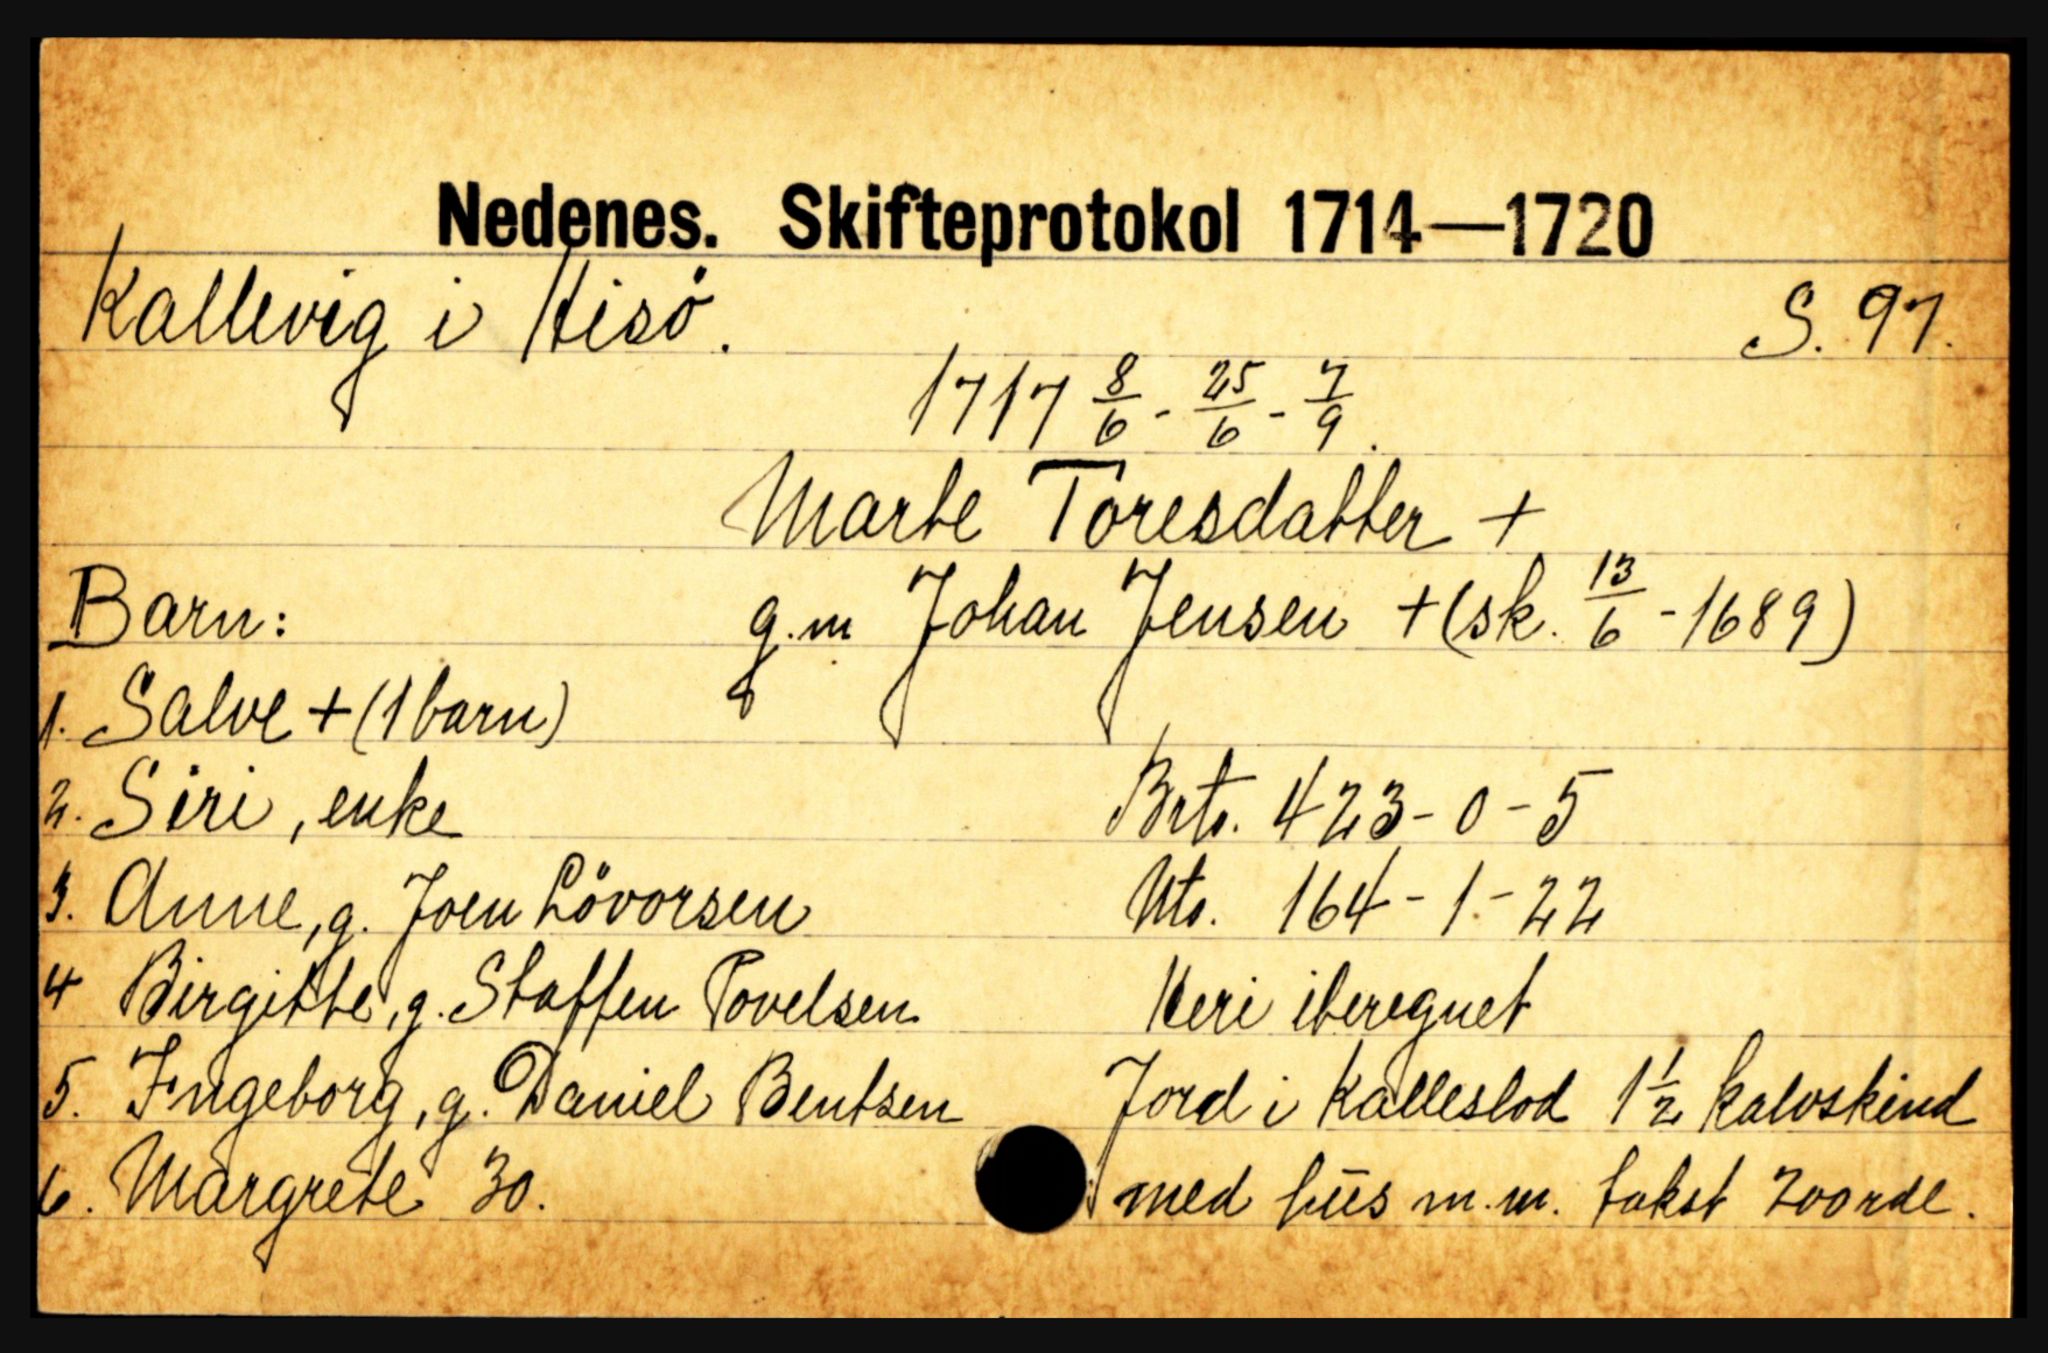 Nedenes. Skifteprotokol 1714—1720
Kallevig i Hisö. S. 97.
1717 8/6 - 25/6 - 7/9.
Marte Toresdatter +
Barn: g.m Johan Jensen + (sk. 13/6 - 1689)
1. Salve + (1 barn)
2. Siri, enke Brto. 423-0-5
3. Anne, g. Joen Lövorsen Nto. 164-1-22
4 Birgitte, g. Staffen Povelsen Heri iberegnet
5. Ingeborg, g. Daniel Bentsen Jord i Kalleslod 1 1/2 kalvskind
6. Margrete 30. med hus m.m. takst 200 rdl.